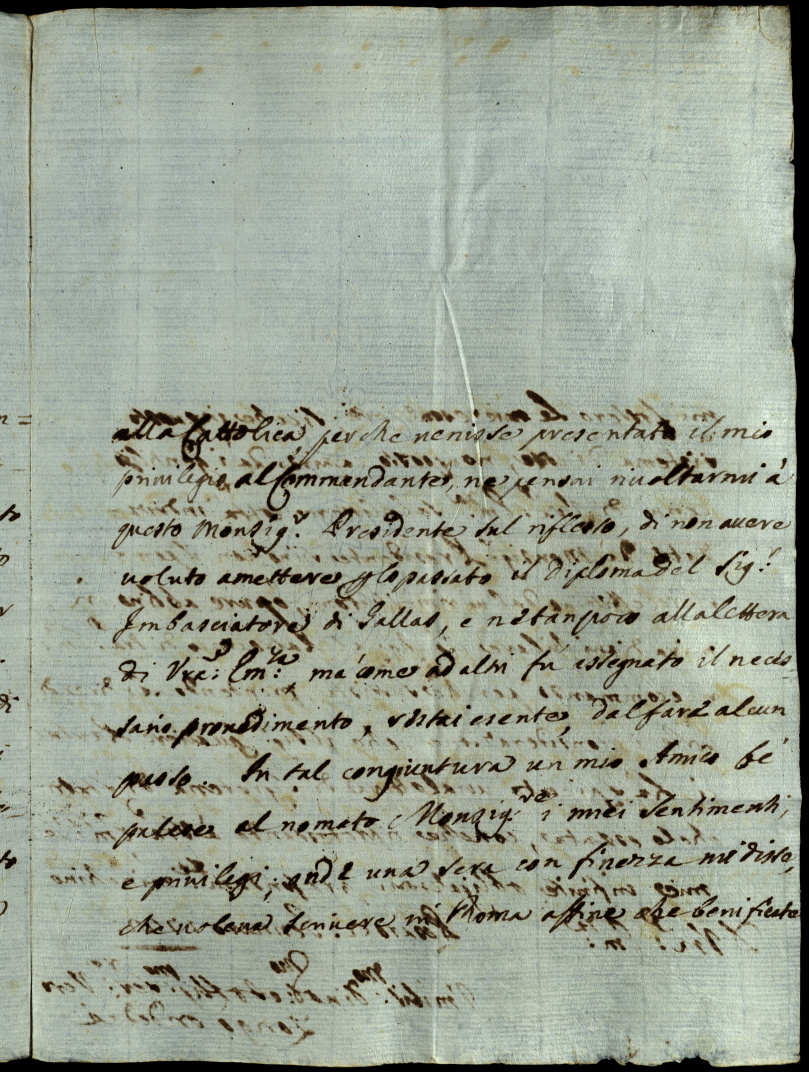 alla Cattolica perche uenisse presentato il mio
priuilegio al Commendante, ne pensai riuoltarmi à
questo Monsig.r Presidente sul riflesso, di non auere
uoluto amettere il passato il Diploma del Sig.r
Imbasciatore di Gallas, e ne tanpoco alla lettera
di Vra: Em:za, ma come ad altri fù assegnato il neces-
sario prouedimento, restai esente, dal fare alcun
passo. In tal congiuntura un mio Amico fè
palese al nomato Monsig.re i miei Sentimenti,
e priuilegi, onde una sera con finezza mi disse,
che uoleua scriuere in Roma affine che benificato